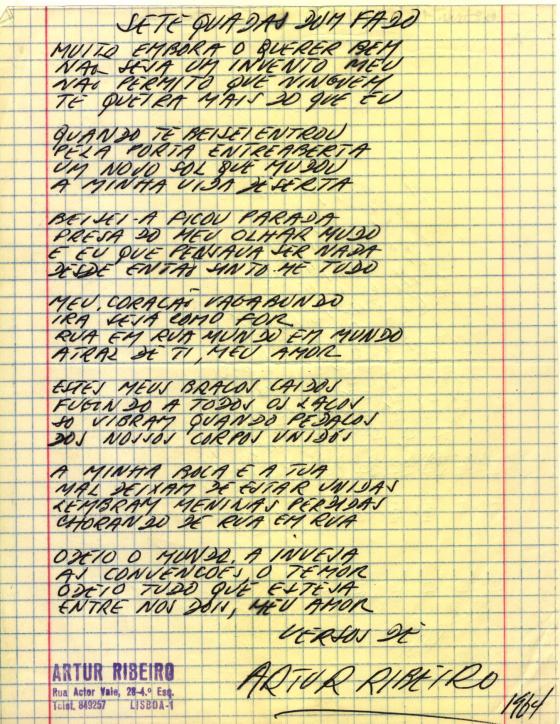 SETE QUADAS DUM FADO
MUITO EMBORA O QUERER BEM
NÃO SEJA UM INVENTO MEU
NÃO PERMITO QUE NINGUEM
TE QUEIRA MAIS DO QUE EU
QUANDO TE BEIJEI ENTROU
PELA PORTA ENTREABERTA
UM NOVO SOL QUE MUDOU
A MINHA VIDA DESERTA
BEIJEI-A FICOU PARADA
PRESA DO MEU OLHAR MUDO
E EU QUE PENSAVA SER NADA
DESDE ENTÃO SINTO-ME TUDO
MEU CORAÇÃO VAGABUNDO
IRA SEJA COMO FOR
RUA EM RUA MUNDO EM MUNDO
ATRAZ DE TI, MEU AMOR
ESTES MEUS BRAÇOS CAIDOS
FUGINDO A TODOS OS LAÇOS
SO VIBRAM QUANDO PEDAÇOS
DOS NOSSOS CORPOS UNIDOS
A MINHA BOCA E A TUA
MAL DEIXAM DE ESTAR UNIDAS
LEMBRAM MENINAS PERDIDAS
CHORANDO DE RUA EM RUA
ODEIO O MUNDO A INVEJA
AS CONVENÇOES O TEMOR
ODEIO TUDO QUE ESTEJA
ENTRE NOS DOIS, MEU AMOR
VERSOS DE
ARTUR RIBEIRO
1964
ARTUR RIBEIRO
Rua Actor Vale, 28-4.º Esq.
Telef. 849257 LISBOA-1